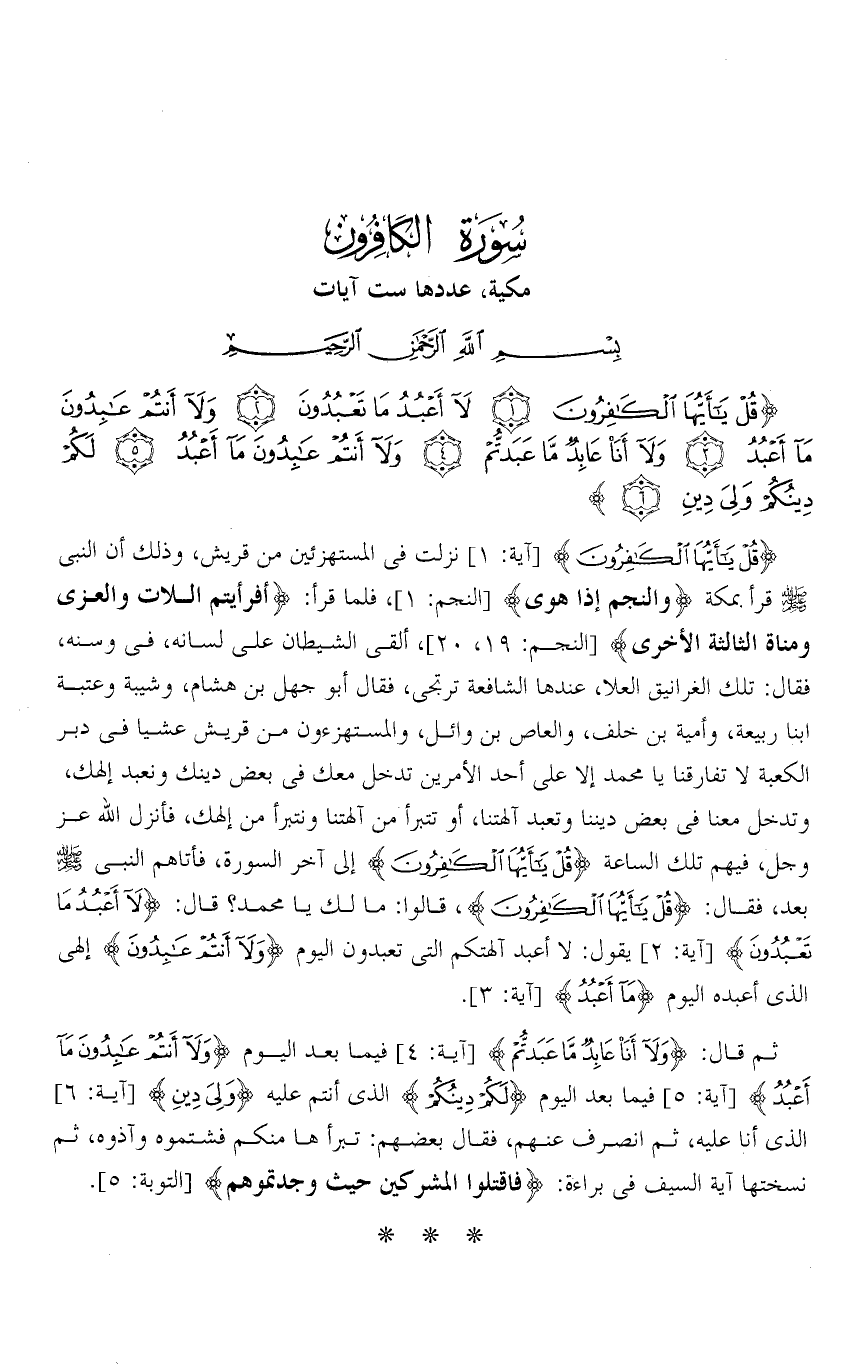 سُورَة الكَافِرُون
مكية، عددها ست آيات
بِسْمِ ٱللَّهِ ٱلرَّحْمَٰنِ ٱلرَّحِيمِ
﴿قُلْ يَٰٓأَيُّهَا ٱلْكَٰفِرُونَ ١ لَآ أَعْبُدُ مَا تَعْبُدُونَ ٢ وَلَآ أَنتُمْ عَٰبِدُونَ
مَآ أَعْبُدُ ٣ وَلَآ أَنَا۠ عَابِدٌ مَّا عَبَدتُّمْ ٤ وَلَآ أَنتُمْ عَٰبِدُونَ مَآ أَعْبُدُ ٥ لَكُمْ
دِينُكُمْ وَلِىَ دِينِ ٦﴾
﴿قُلْ يَٰٓأَيُّهَا ٱلْكَٰفِرُونَ﴾ [آية: ١] نزلت فى المستهزئين من قريش، وذلك أن النبى
ﷺ قرأ بمكة ﴿والنجم إذا هوى﴾ [النجم: ١]، فلما قرأ: ﴿أفرأيتم اللات والعزى
ومناة الثالثة الأخرى﴾ [النجم: ١٩، ٢٠]، ألقى الشيطان على لسانه، فى وسنه،
فقال: تلك الغرانيق العلا، عندها الشافعة ترتجى، فقال أبو جهل بن هشام، وشيبة وعتبة
ابنا ربيعة، وأمية بن خلف، والعاص بن وائل، والمستهزءون من قريش عشيا فى دبر
الكعبة لا تفارقنا يا محمد إلا على أحد الأمرين تدخل معك فى بعض دينك ونعبد إلهك،
وتدخل معنا فى بعض ديننا وتعبد آلهتنا، أو تتبرأ من آلهتنا ونتبرأ من إلهك، فأنزل الله عز
وجل، فيهم تلك الساعة ﴿قُلْ يَٰٓأَيُّهَا ٱلْكَٰفِرُونَ﴾ إلى آخر السورة، فأتاهم النبى ﷺ
بعد، فقال: ﴿قُلْ يَٰٓأَيُّهَا ٱلْكَٰفِرُونَ﴾، قالوا: ما لك يا محمد؟ قال: ﴿لَآ أَعْبُدُ مَا
تَعْبُدُونَ﴾ [آية: ٢] يقول: لا أعبد آلهتكم التى تعبدون اليوم ﴿وَلَآ أَنتُمْ عَٰبِدُونَ﴾ إلهى
الذى أعبده اليوم ﴿مَآ أَعْبُدُ﴾ [آية: ٣].
ثم قال: ﴿وَلَآ أَنَا۠ عَابِدٌ مَّا عَبَدتُّمْ﴾ [آية: ٤] فيما بعد اليوم ﴿وَلَآ أَنتُمْ عَٰبِدُونَ مَآ
أَعْبُدُ﴾ [آية: ٥] فيما بعد اليوم ﴿لَكُمْ دِينُكُمْ﴾ الذى أنتم عليه ﴿وَلِىَ دِينِ﴾ [آية: ٦]
الذى أنا عليه، ثم انصرف عنهم، فقال بعضهم: تبرأ هذا منكم فشتموه وآذوه، ثم
نسختها آية السيف فى براءة: ﴿فاقتلوا المشركين حيث وجدتموهم﴾ [التوبة: ٥].
* * *